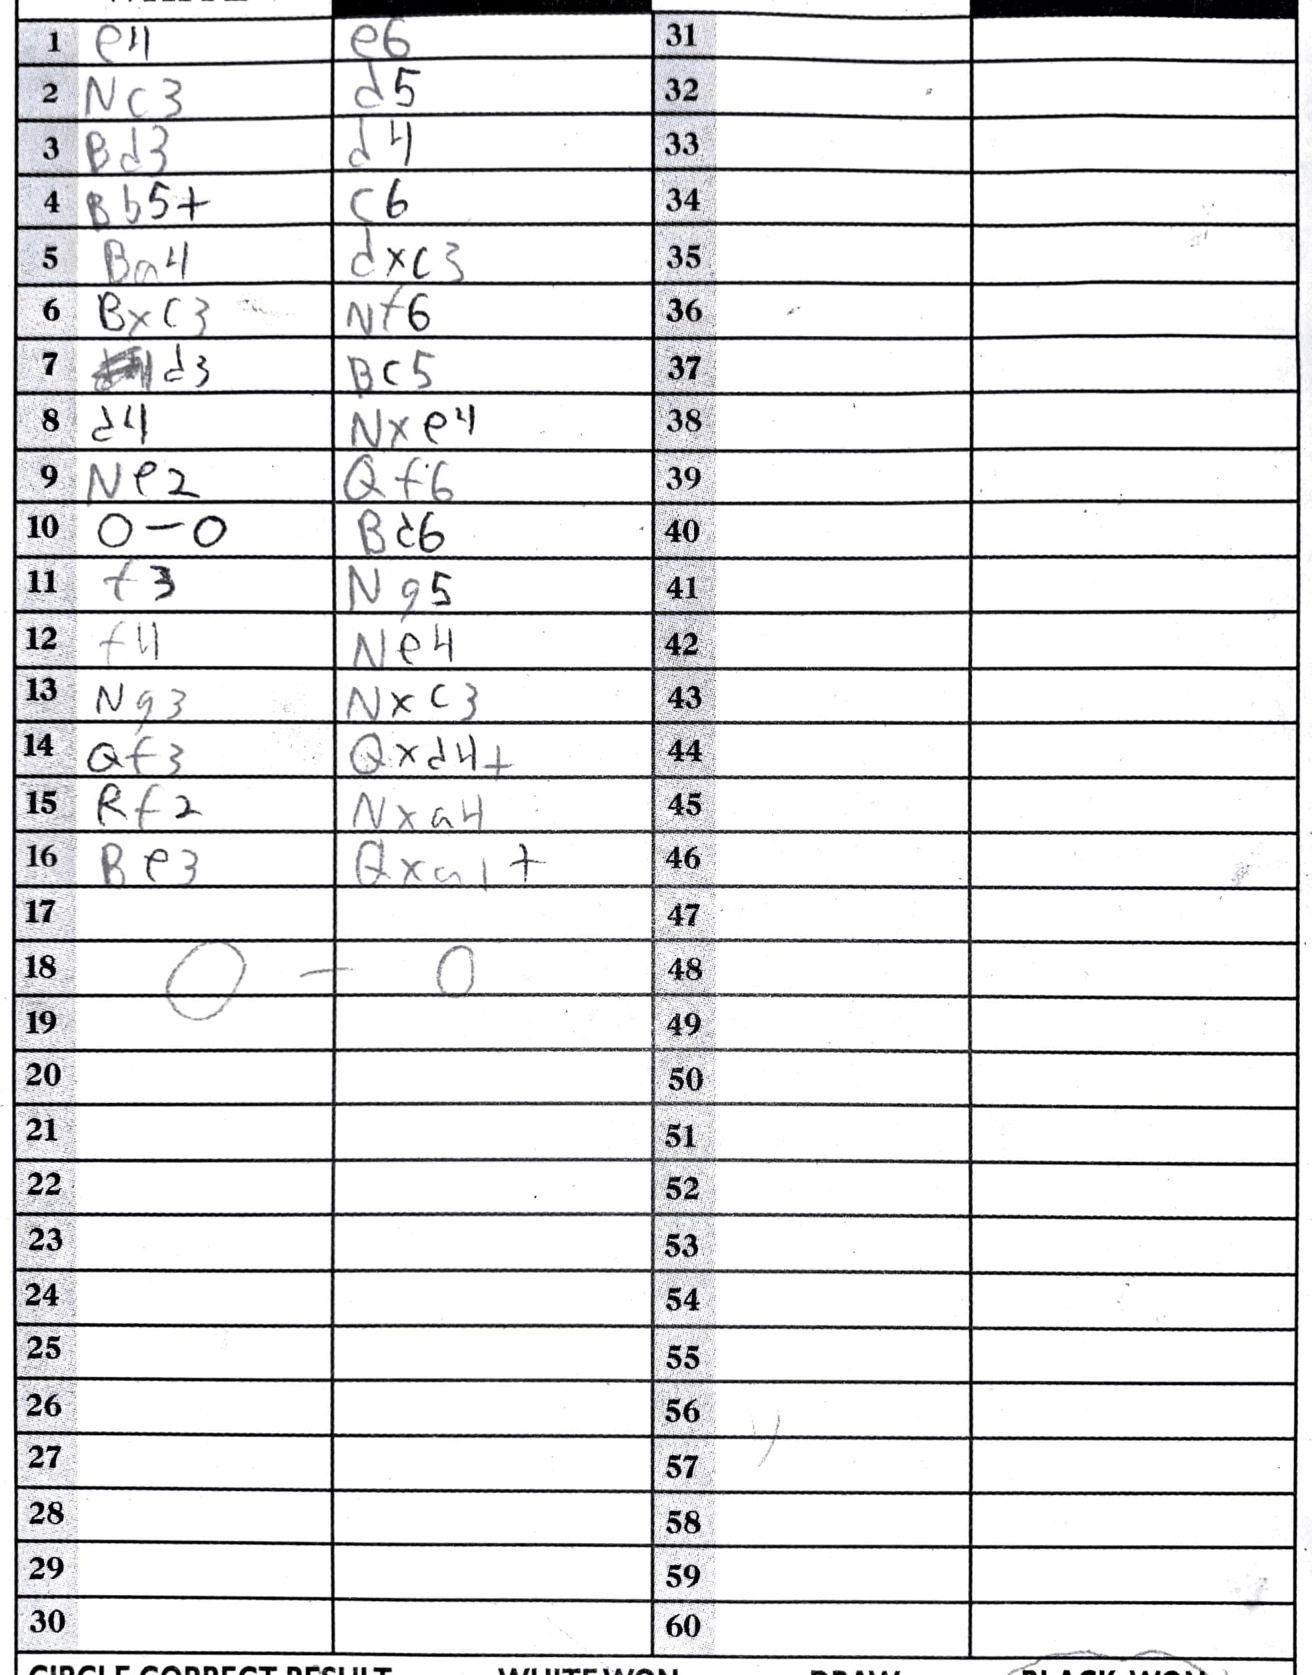 1 e4 e6 31
2 Nc3 d5 32
3 Bd3 d4 33
4 Bb5+ c6 34
5 Ba4 dxc3 35
6 Bxc3 Nf6 36
7 d3 Bc5 37
8 d4 Nxe4 38
9 Ne2 Qf6 39
10 0-0 Bd6 40
11 f3 Ng5 41
12 f4 Ne4 42
13 Ng3 Nxc3 43
14 Qf3 Qxd4+ 44
15 Rf2 Nxa4 45
16 Be3 Qxa1+ 46
17 47
18 0 - 0 48
19 49
20 50
21 51
22 52
23 53
24 54
25 55
26 56
27 57
28 58
29 59
30 60
CIRCLE CORRECT RESULT WHITE WON DRAW BLACK WON